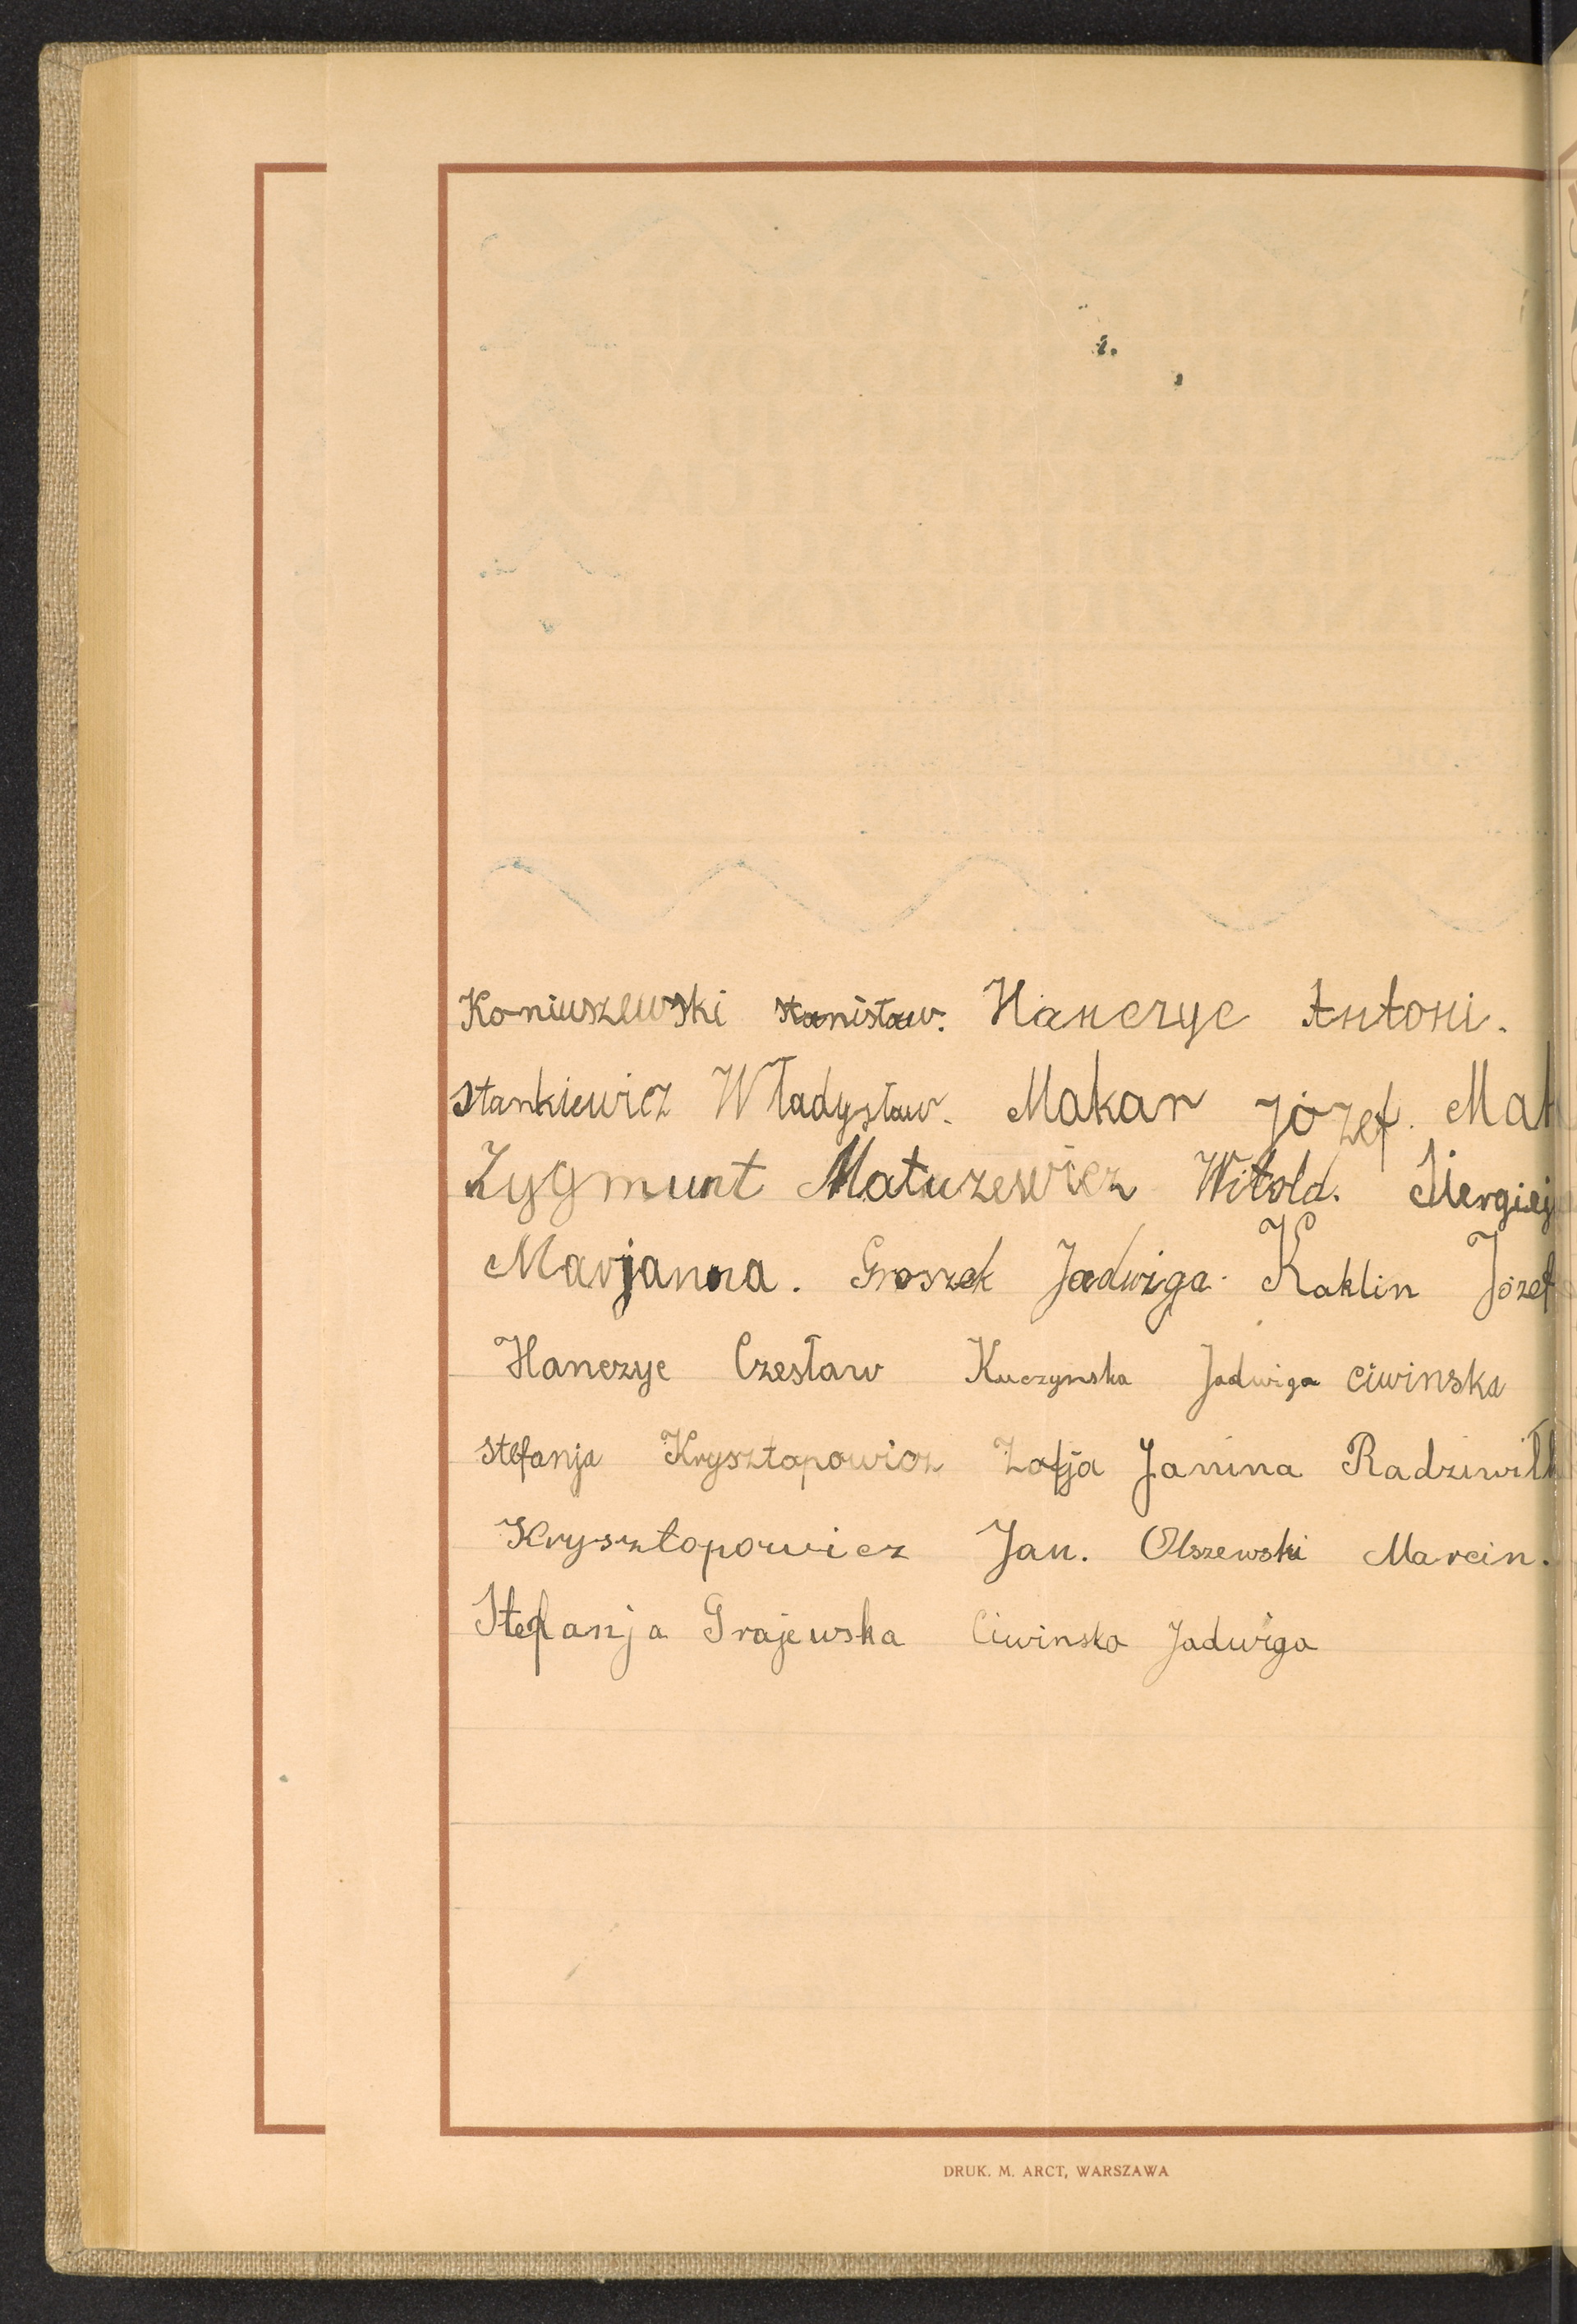 Koniuszewski stanisław. Hanczyc Antoni.
stankiewicz Władysław. Makar józef.
Zygmunt Matuzewicz Witold.
Marjanna. Groszek Jadwiga. Kaklin Józef
Hanczyc Czesław Kuczynska Jadwiga ciwinska
stefanja Krysztopowicz Zofja Janina Radziwiłł
Krysztopowicz Jan. Olszewski Marcin.
Stefanja Grajewska Ciwinska Jadwiga
DRUK. M. ARCT, WARSZAWA